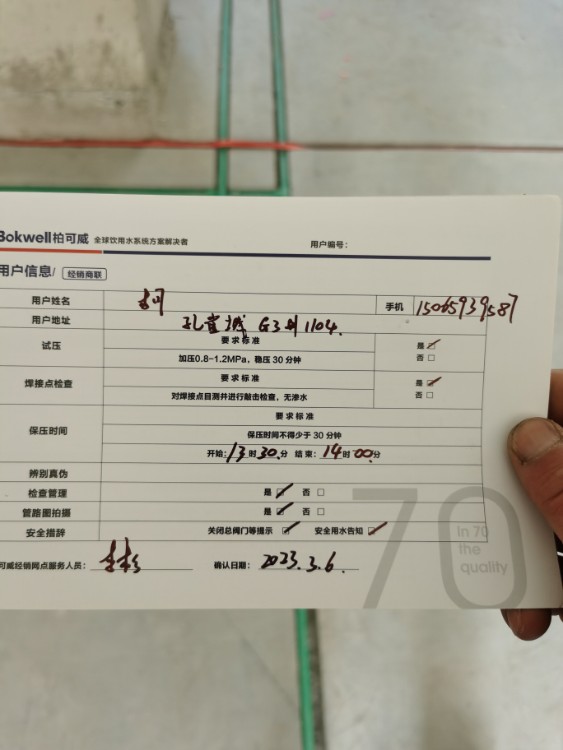 Bokwell柏可威 全球饮用水系统方案解决者 用户编号：
用户信息/ 经销商联
用户姓名 手机 15065939587
用户地址 孔雀城 G3 1104.
试压 要求标准 是 ☑
加压0.8-1.2MPa，稳压 30 分钟 否 □
焊接点检查 要求标准 是 ☑
对焊接点目测并进行敲击检查，无渗水 否 □
保压时间 要求标准
保压时间不得少于 30 分钟
开始：13 时 30 分 结束：14 时 00 分
辨别真伪
检查管理 是 ☑ 否 □
管路图拍摄 是 ☑ 否 □
安全措辞 关闭总阀门等提示 ☑ 安全用水告知 ☑
可威经销网点服务人员： 确认日期：2023.3.6.
70
in 70
the
quality